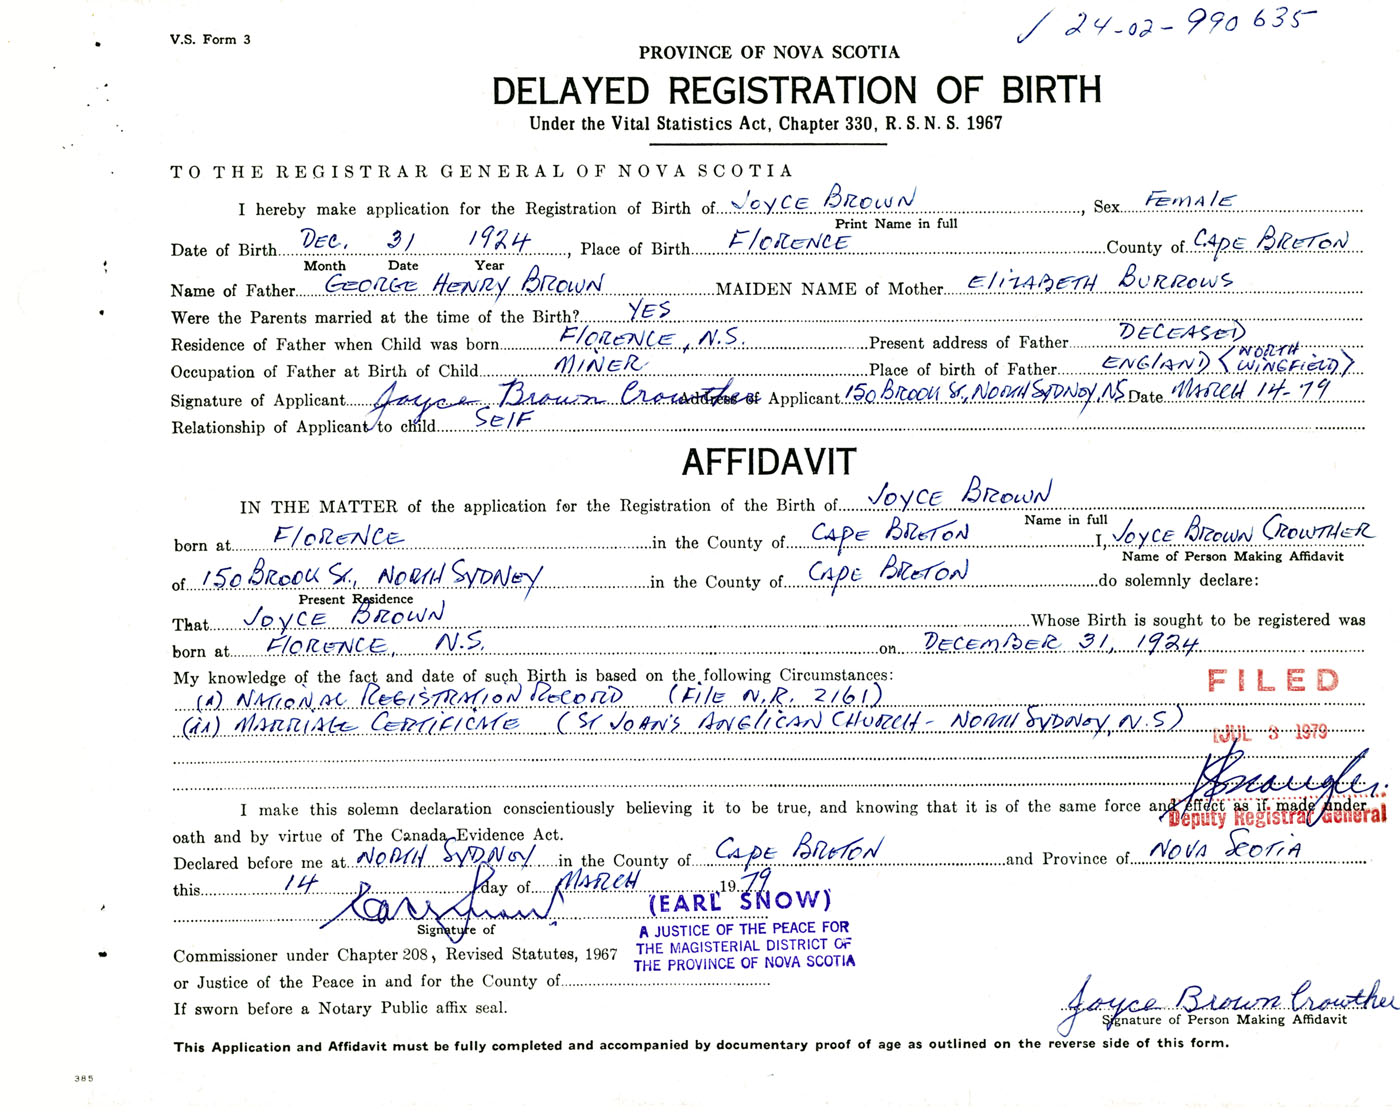 V.S. Form 3
✓ 24-02-990635
PROVINCE OF NOVA SCOTIA
DELAYED REGISTRATION OF BIRTH
Under the Vital Statistics Act, Chapter 330, R. S. N. S. 1967
TO THE REGISTRAR GENERAL OF NOVA SCOTIA
I hereby make application for the Registration of Birth of JOYCE BROWN, Sex FEMALE
Print Name in full
Date of Birth DEC. 31 1924, Place of Birth FLORENCE County of CAPE BRETON
Month Date Year
Name of Father GEORGE HENRY BROWN MAIDEN NAME of Mother ELIZABETH BURROWS
Were the Parents married at the time of the Birth? YES
Residence of Father when Child was born FLORENCE, N.S. Present address of Father DECEASED
Occupation of Father at Birth of Child MINER Place of birth of Father ENGLAND (NORTH WINGFIELD)
Signature of Applicant Joyce Brown Crowther Address of Applicant 150 BROOK St., NORTH SYDNEY, NS Date MARCH 14-79
Relationship of Applicant to child SELF
AFFIDAVIT
IN THE MATTER of the application for the Registration of the Birth of JOYCE BROWN
Name in full
born at FLORENCE in the County of CAPE BRETON I, JOYCE BROWN CROWTHER
Name of Person Making Affidavit
of 150 BROOK St., NORTH SYDNEY in the County of CAPE BRETON do solemnly declare:
Present Residence
That JOYCE BROWN Whose Birth is sought to be registered was
born at FLORENCE, N.S. on DECEMBER 31, 1924
My knowledge of the fact and date of such Birth is based on the following Circumstances:
(i) NATIONAL REGISTRATION RECORD (FILE N.R. 2161)
(ii) MARRIAGE CERTIFICATE (ST JOHN'S ANGLICAN CHURCH - NORTH SYDNEY, N.S)
FILED
JUL 3 1979
Deputy Registrar General
I make this solemn declaration conscientiously believing it to be true, and knowing that it is of the same force and effect as if made under
oath and by virtue of The Canada Evidence Act.
Declared before me at NORTH SYDNEY in the County of CAPE BRETON and Province of NOVA SCOTIA
this 14 day of MARCH 1979
(EARL SNOW)
A JUSTICE OF THE PEACE FOR
THE MAGISTERIAL DISTRICT OF
THE PROVINCE OF NOVA SCOTIA
Earl Snow
Signature of
Commissioner under Chapter 208, Revised Statutes, 1967
or Justice of the Peace in and for the County of
If sworn before a Notary Public affix seal.
Joyce Brown Crowther
Signature of Person Making Affidavit
This Application and Affidavit must be fully completed and accompanied by documentary proof of age as outlined on the reverse side of this form.
385